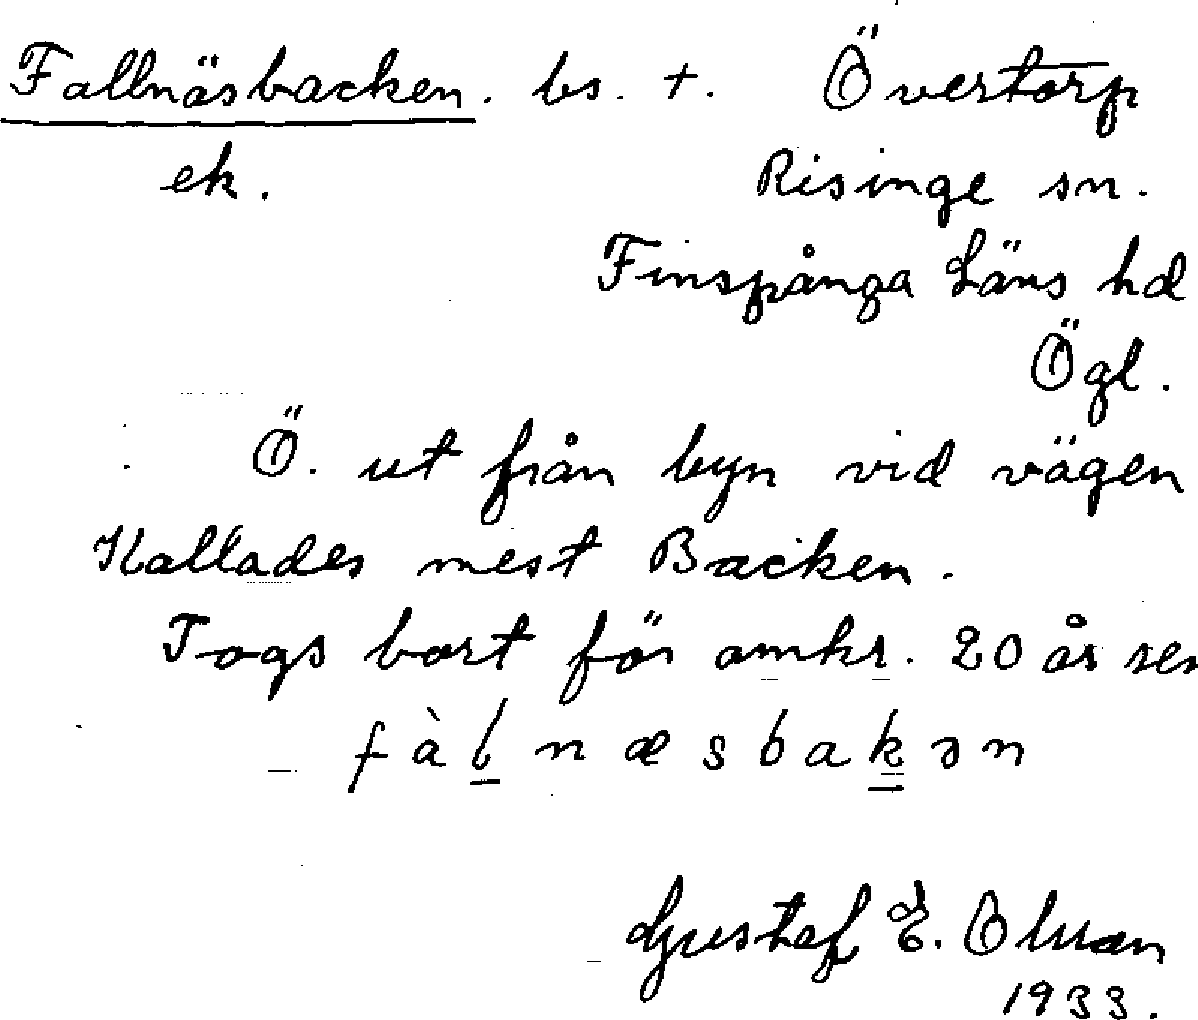 Fallnäsbacken. bs. +. Övertorp
ek. Risinge sn.
Finspånga Läns hd
Ögl.
Ö. ut från byn vid vägen
Kallades mest Backen.
Togs bort för omkr. 20 år sen
fàlnæsbakən
Gustaf E. Olman
1933.